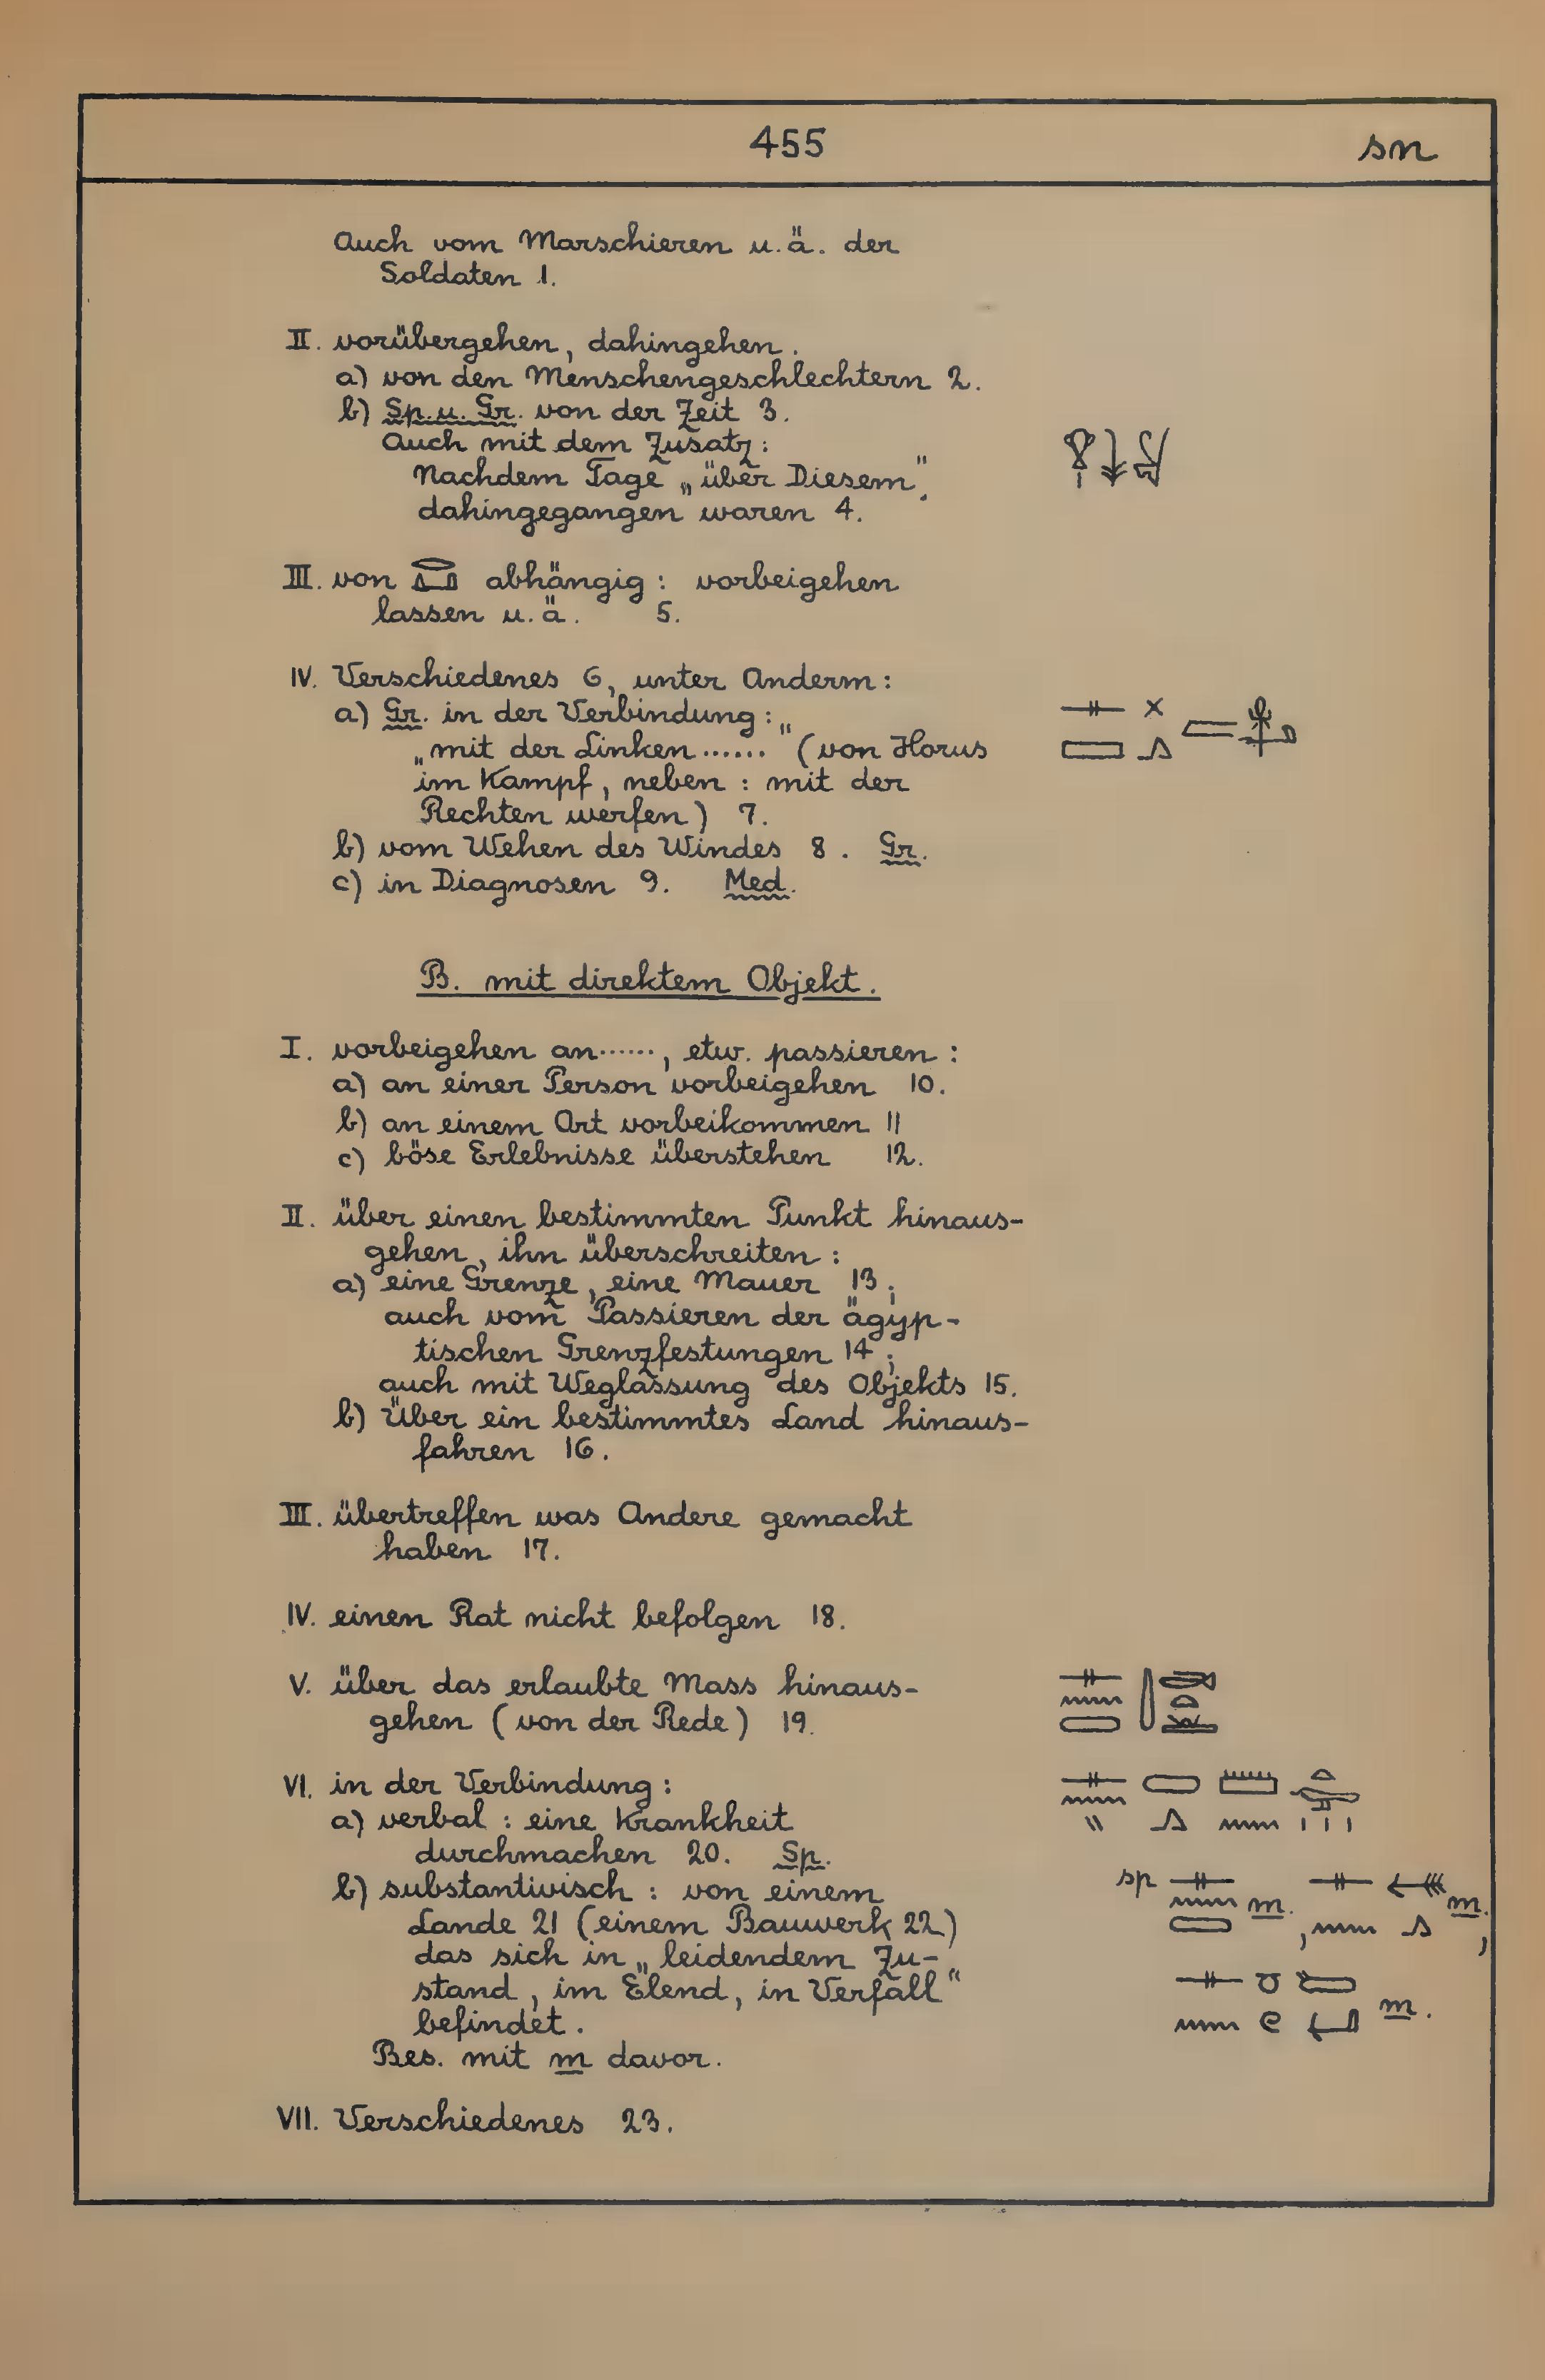 455 sn
Auch vom Marschieren u.ä. der
Soldaten 1.
II. vorübergehen, dahingehen.
a) von den Menschengeschlechtern 2.
b) Sp. u. Gr. von der Zeit 3.
Auch mit dem Zusatz:
Nachdem Tage „über Diesem"
dahingegangen waren 4.
III. von abhängig: vorbeigehen
lassen u.ä. 5.
IV. Verschiedenes 6, unter Anderm:
a) Gr. in der Verbindung:
„mit der Linken ......" (von Horus
im Kampf, neben: mit der
Rechten werfen) 7.
b) vom Wehen des Windes 8. Gr.
c) in Diagnosen 9. Med.
B. mit direktem Objekt.
I. vorbeigehen an......, etw. passieren:
a) an einer Person vorbeigehen 10.
b) an einem Ort vorbeikommen 11
c) böse Erlebnisse überstehen 12.
II. über einen bestimmten Punkt hinaus-
gehen, ihn überschreiten:
a) eine Grenze, eine Mauer 13;
auch vom Passieren der ägyp-
tischen Grenzfestungen 14;
auch mit Weglassung des Objekts 15.
b) Über ein bestimmtes Land hinaus-
fahren 16.
III. übertreffen was Andere gemacht
haben 17.
IV. einen Rat nicht befolgen 18.
V. über das erlaubte Mass hinaus-
gehen (von der Rede) 19.
VI. in der Verbindung:
a) verbal: eine Krankheit
durchmachen 20. Sp.
b) substantivisch: von einem sp m., m.,
Lande 21 (einem Bauwerk 22)
das sich in „leidendem Zu-
stand, im Elend, in Verfall" m.
befindet.
Bes. mit m davor.
VII. Verschiedenes 23.